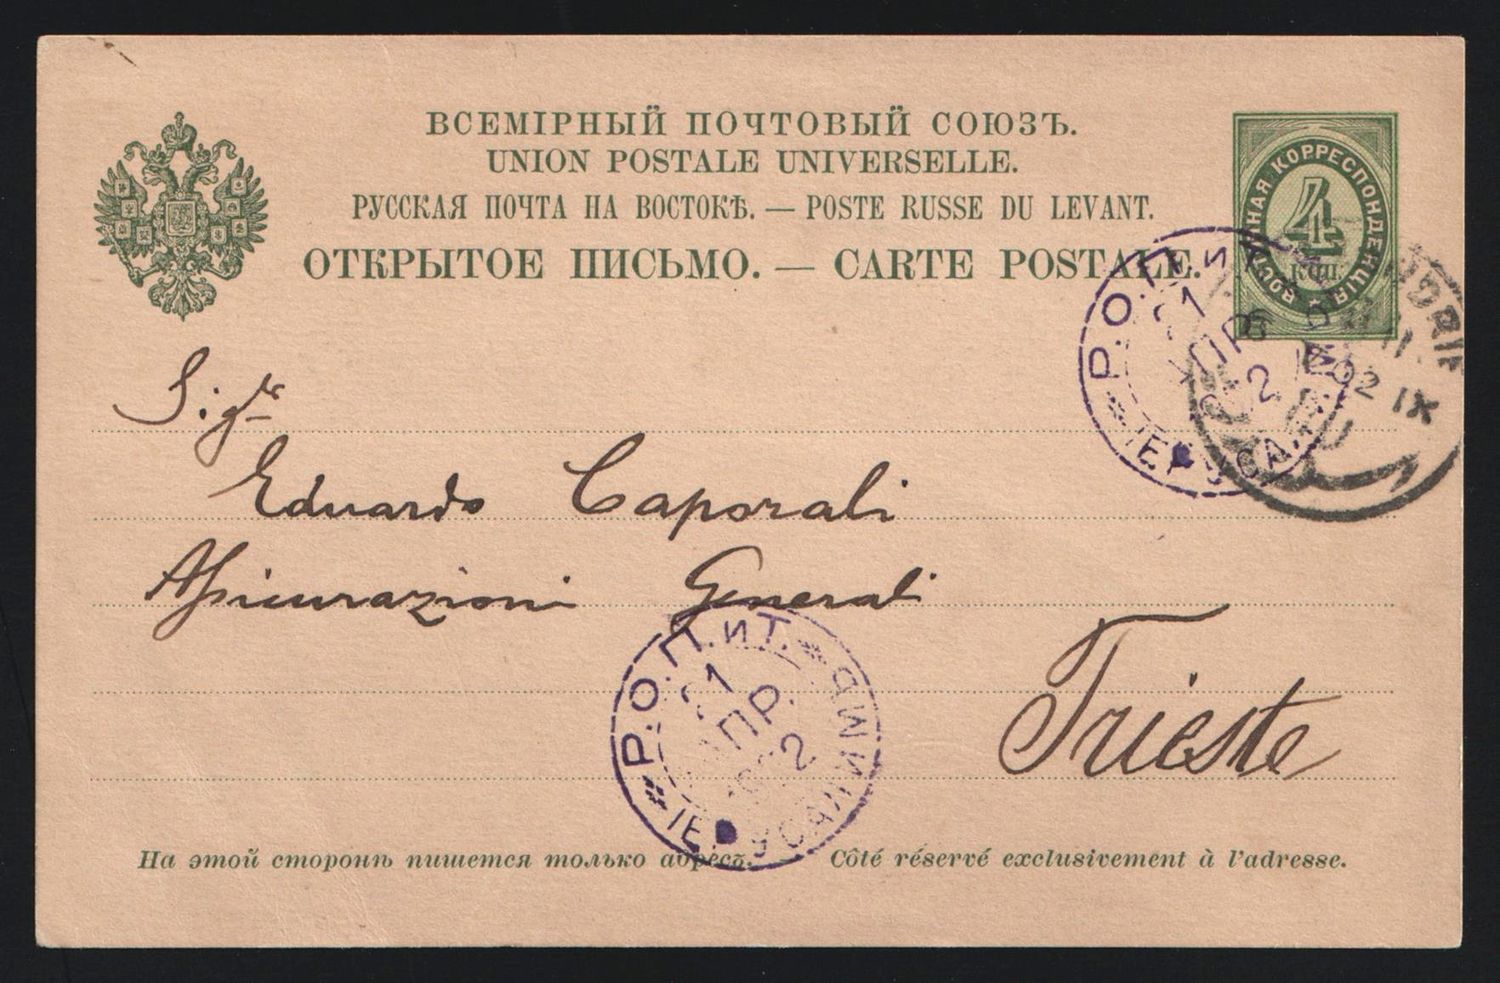 ВСЕМІРНЫЙ ПОЧТОВЫЙ СОЮЗЪ.
UNION POSTALE UNIVERSELLE.
РУССКАЯ ПОЧТА НА ВОСТОКѢ. — POSTE RUSSE DU LEVANT.
ОТКРЫТОЕ ПИСЬМО. — CARTE POSTALE.
ВОСТОЧНАЯ КОРРЕСПОНДЕНЦІЯ
4
КОП.
Р.О.П. и Т.
21
АПР.
2
ІЕРУСАЛ
02 IX
Sigre
Eduardo Caporali
Assicurazioni Generali
Trieste
Р.О.П. и Т.
21
АПР.
2
ІЕРУСАЛИМЪ
На этой сторонѣ пишется только адресъ. Côté réservé exclusivement à l'adresse.